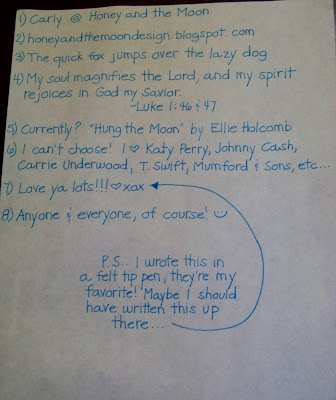 1) Carly @ Honey and the Moon
2) honeyandthemoondesign.blogspot.com
3) The quick fox jumps over the lazy dog
4) My soul magnifies the Lord, and my spirit
rejoices in God my Savior.
-Luke 1:46 & 47
5) Currently? "Hung the Moon" by Ellie Holcomb
6) I can't choose! I ♡ Katy Perry, Johnny Cash,
Carrie Underwood, T. Swift, Mumford & Sons, etc...
7) Love ya lots!!! ♡ xox
8) Anyone & everyone, of course! ☺
P.S.: I wrote this in
a felt tip pen, they're my
favorite! Maybe I should
have written this up
there...